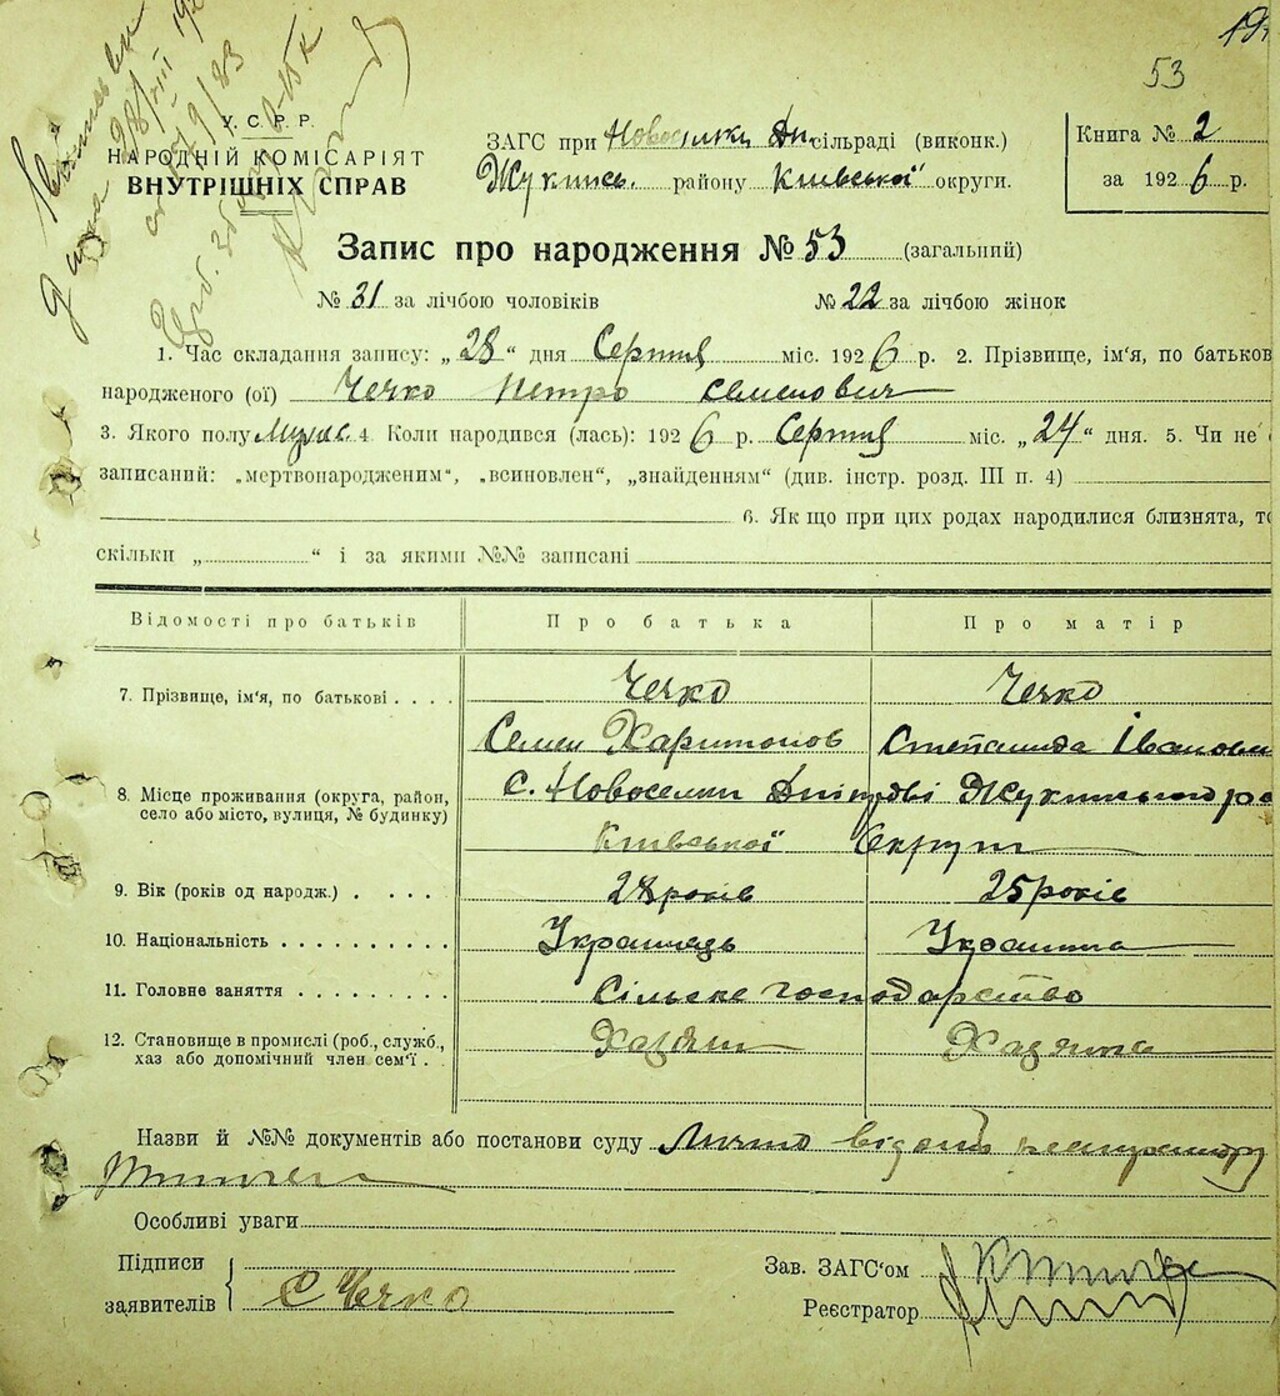 53
У. С. Р. Р.
НАРОДНІЙ КОМІСАРІЯТ
ВНУТРІШНІХ СПРАВ
ЗАГС при Новосилки Дн. сільраді (виконк.)
Жукинсь. району Київської округи.
Книга № 2
за 1926 р.
Запис про народження № 53 (загальний)
№ 31 за лічбою чоловіків № 22 за лічбою жінок
1. Час складання запису: „28“ дня Серпня міс. 1926 р. 2. Прізвище, ім'я, по батьков
народженого (ої) Чечко Петро Семенович
3. Якого полу 4 Коли народився (лась): 1926 р. Серпня міс. „24“ дня. 5. Чи не
записаний: „мертвонародженим“, „всиновлен“, „знайденням“ (див. інстр. розд. III п. 4)
6. Як що при цих родах народилися близнята, то
скільки „ “ і за якими №№ записані
Відомості про батьків Про батька Про матір
7. Прізвище, ім'я, по батькові . . . . Чечко Чечко
Семен Харитонов Степанида Іванови
8. Місце проживання (округа, район, село або місто, вулиця, № будинку) с. Новоселки Дніпрові Жукинського ра
Київської Округи
9. Вік (років од народж.) . . . . 28 років 25 років
10. Національність . . . . . . . . . . Українець Українка
11. Головне заняття . . . . . . . . . Сільське господарство
12. Становище в промислі (роб., служб., хаз або допомічний член сем'ї . . Хазяїн Хазяйка
Назви й №№ документів або постанови суду Лично відомі реєстратору
Особливі уваги
Підписи
заявителів С Чечко
Зав. ЗАГС'ом
Реєстратор